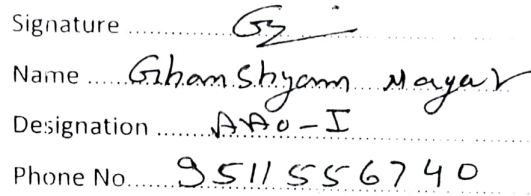 Signature ..........
Name ..... Ghanshyam Nagar
Designation ....... AAO-I
Phone No..... 9511556740